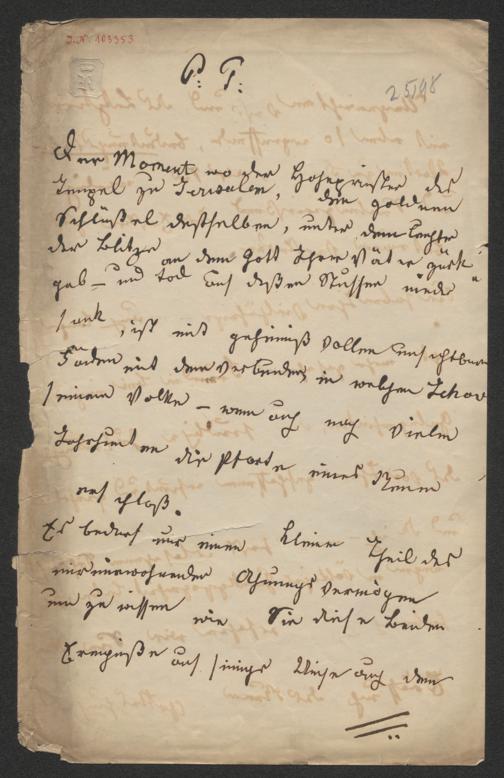 I. N. 103353
P. T.
25/98
Der Moment wo der Hohepriester des
Tempel zu Jerusalem, den goldnen
Schlüßel desselben, unter dem Leuchten
der Blitze an dem Gott Ihrer Väter zurück
gab – und tod auf deßen Stuffen nieder
sank, ist mit geheimniß vollen unsichtbaren
Fäden mit dem verbunden, in welchem Jehova
seinem Volke – wenn auch nach vielen
Jahrhunderten die Pforte eines Neuen
aufschloß.
Es bedarf nur einen kleinen Theil des
mir innwohnenden Ahnungsvermögen
um zu wissen wie Sie diese beiden
Ereigniße auf sinnige Weise auch dem